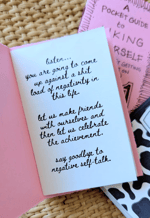 listen...
you are going to come
up against a shit
load of negativity in
this life.
let us make friends
with ourselves and
then let us celebrate
the achievement.
say goodbye to
negative self talk.
A
POCKET GUIDE
TO
KING
RSELF